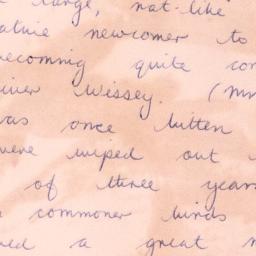 large, rat-like
newcomer to
becoming quite con
iver Wissey. (Mr
as once bitten
were wiped out
of three years
commoner birds
a great